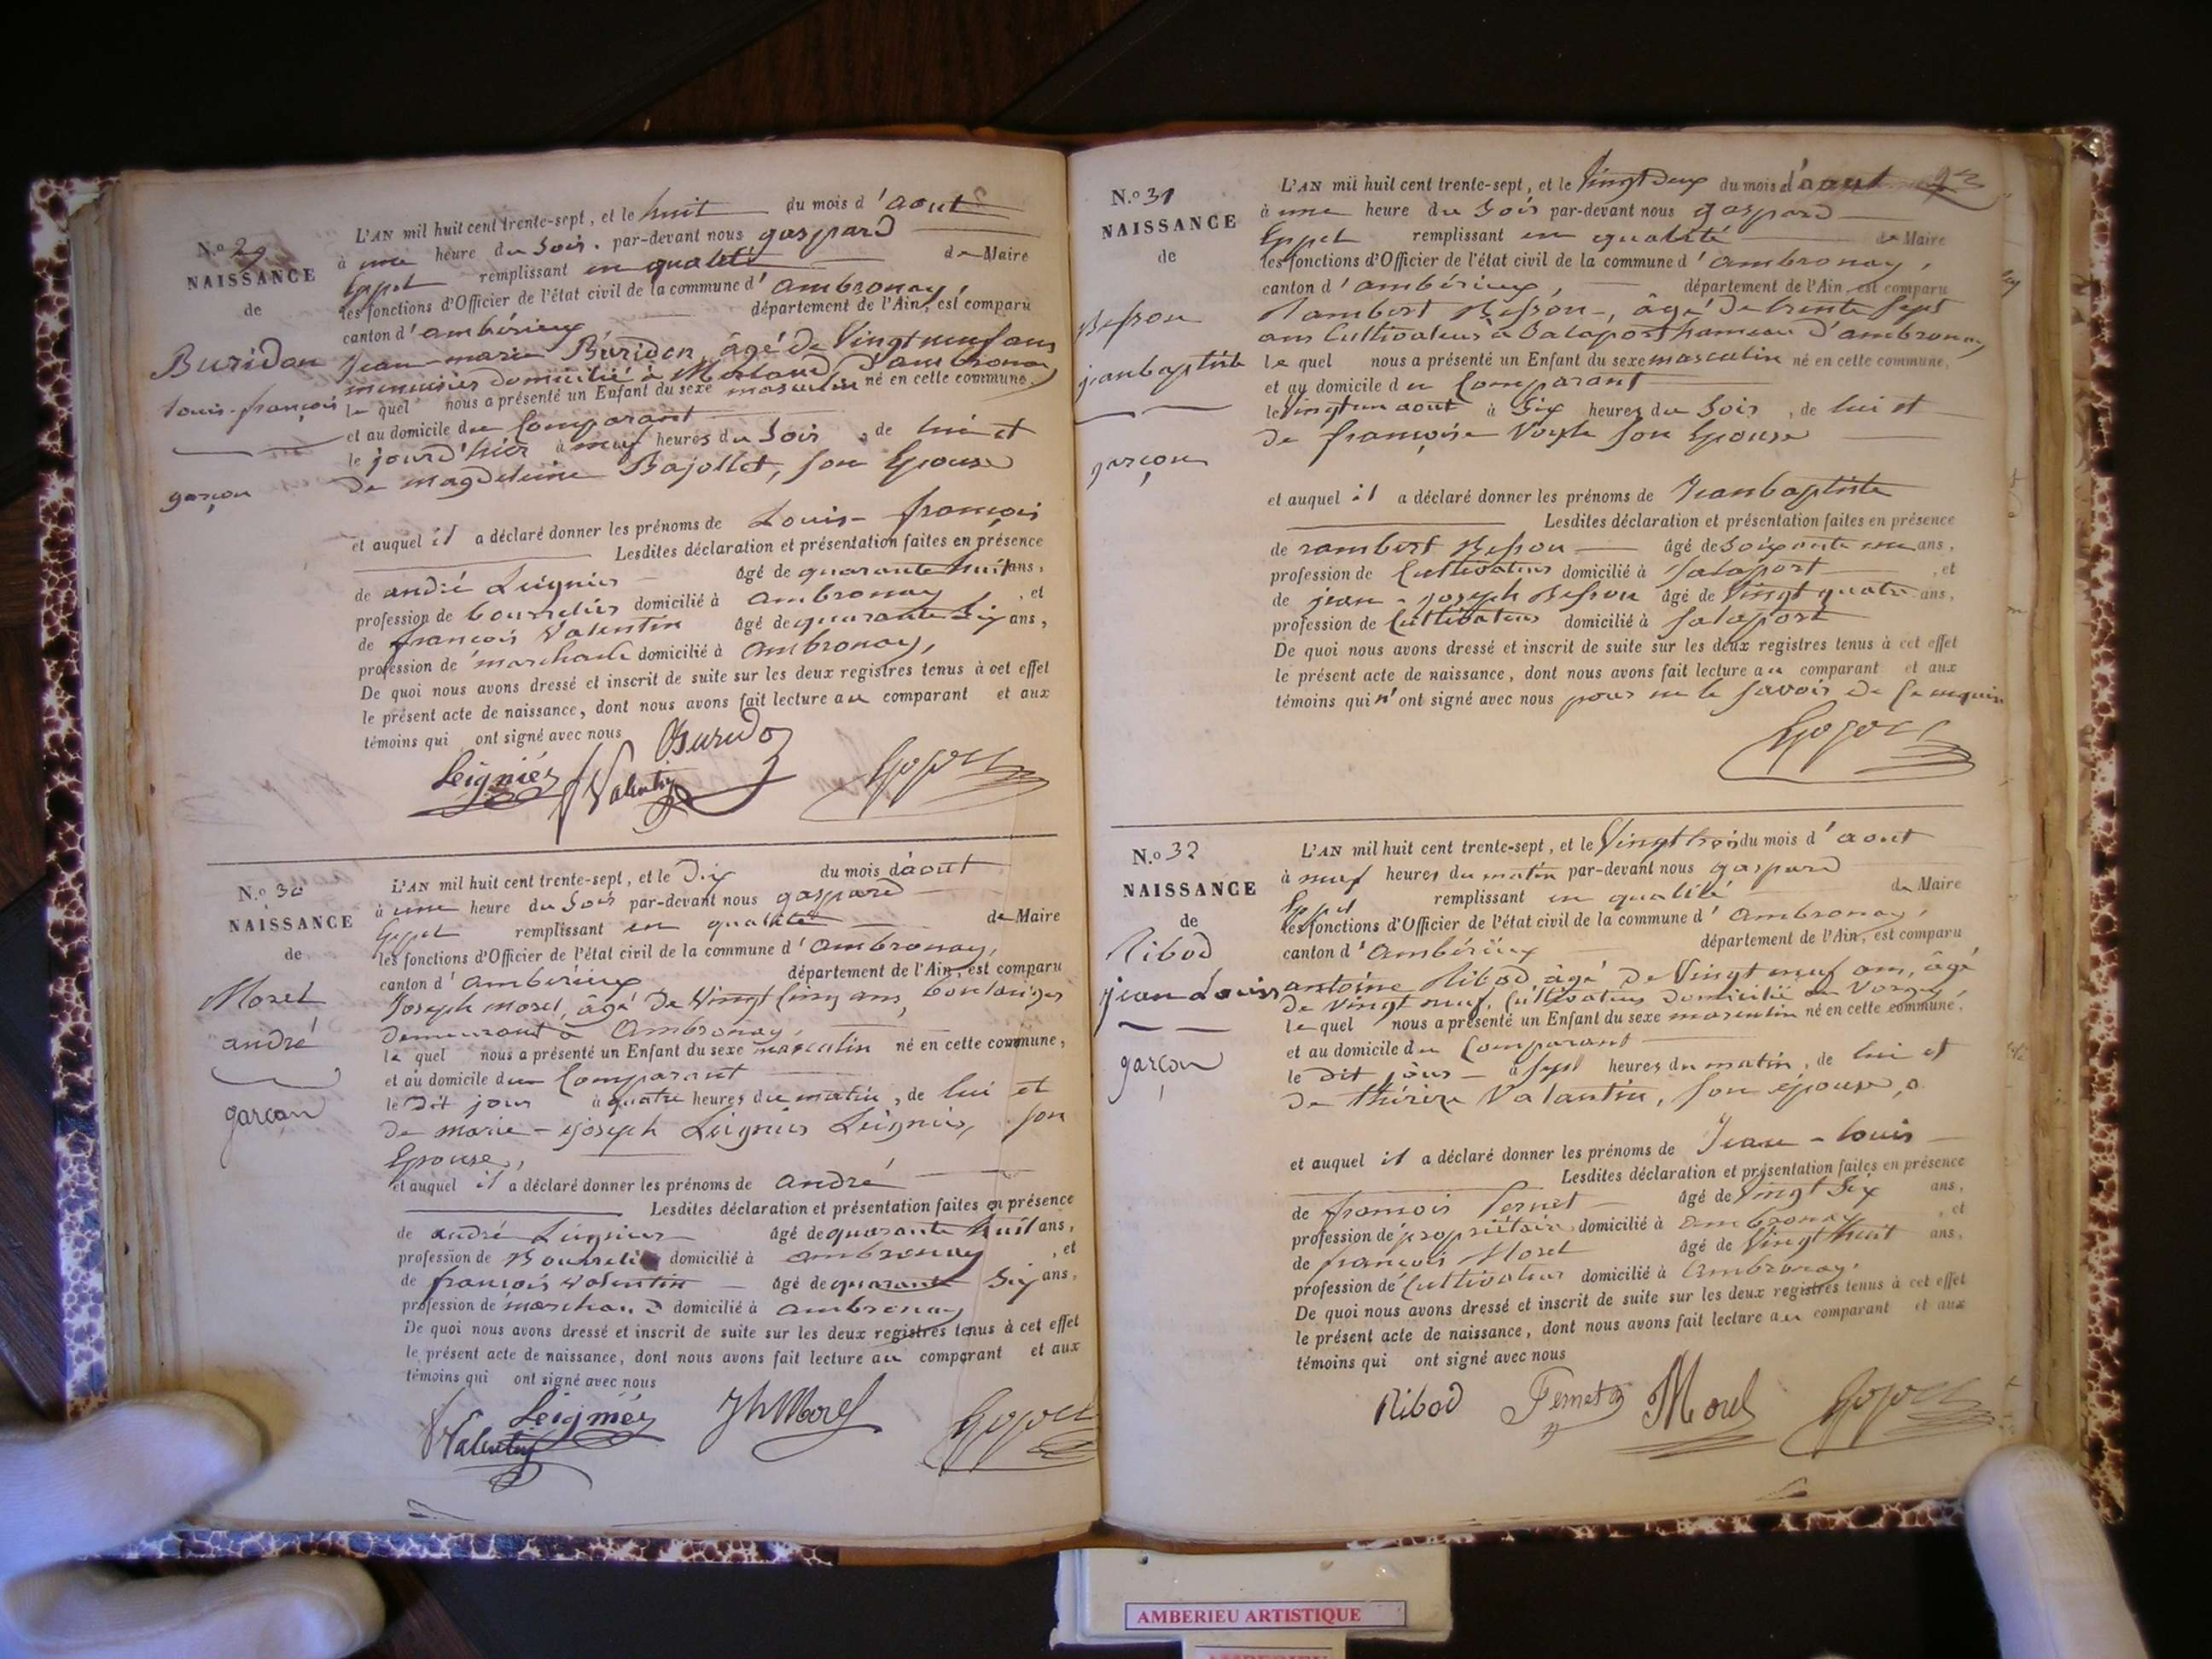 N.o 29
NAISSANCE
de
Buridon
Louis-françois
garçon
L'AN mil huit cent trente-sept, et le huit du mois d'aout
à une heure du Soir. par-devant nous gaspard
remplissant en qualité de Maire
les fonctions d'Officier de l'état civil de la commune d'ambronay,
canton d'ambérieux département de l'Ain, est comparu
Jean-marie Buridon, âgé de Vingt neuf ans
menuisier domicilié à d'ambronay
le quel nous a présenté un Enfant du sexe masculin né en cette commune,
et au domicile du Comparant
le jourd'hier à neuf heures du Soir, de lui et
de magdeleine Bajollet, son Epouse
et auquel il a déclaré donner les prénoms de Louis-françois
Lesdites déclaration et présentation faites en présence
de andré Leignier âgé de quarante huit ans,
profession de bourrelier domicilié à ambronay, et
de françois Valentin âgé de quarante Six ans,
profession de marchand domicilié à ambronay,
De quoi nous avons dressé et inscrit de suite sur les deux registres tenus à cet effet
le présent acte de naissance, dont nous avons fait lecture au comparant et aux
témoins qui ont signé avec nous
Buridon
Leigniér Valentin
N.o 30
NAISSANCE
de
Morel
andré
garçon
L'AN mil huit cent trente-sept, et le Dix du mois d'aout
à une heure du Soir par-devant nous gaspard
remplissant en qualité de Maire
les fonctions d'Officier de l'état civil de la commune d'ambronay,
canton d'ambérieux département de l'Ain, est comparu
Joseph morel, âgé de Vingt Cinq ans, boulanger
demeurant à Ambronay,
le quel nous a présenté un Enfant du sexe masculin né en cette commune,
et au domicile du Comparant
le Dit jour à quatre heures du matin, de lui et
de marie-joseph Leignier Leignier, son
Epouse,
et auquel il a déclaré donner les prénoms de andré
Lesdites déclaration et présentation faites en présence
de andré Leignier âgé de quarante huit ans,
profession de Bourrelier domicilié à ambronay, et
de françois Valentin âgé de quarante Six ans,
profession de marchand domicilié à ambronay
De quoi nous avons dressé et inscrit de suite sur les deux registres tenus à cet effet
le présent acte de naissance, dont nous avons fait lecture au comparant et aux
témoins qui ont signé avec nous
Valentin Leigniér Jh Morel
N.o 31
NAISSANCE
de
Besson
jeanbaptiste
garçon
L'AN mil huit cent trente-sept, et le Vingt Deux du mois d'aout
à une heure du Soir par-devant nous gaspard
remplissant en qualité de Maire
les fonctions d'Officier de l'état civil de la commune d'ambronay,
canton d'ambérieux, département de l'Ain est comparu
Rambert Besson, âgé de trente Sept
ans Cultivateur à Salaport hameau d'ambronay
le quel nous a présenté un Enfant du sexe masculin né en cette commune,
et au domicile du Comparant
le Vingt un aout à Six heures du Soir, de lui et
de françoise son Epouse
et auquel il a déclaré donner les prénoms de Jeanbaptiste
Lesdites déclaration et présentation faites en présence
de rambert Besson âgé de Soixante un ans,
profession de Cultivateur domicilié à Salaport, et
de jean-joseph Besson âgé de Vingt quatre ans,
profession de Cultivateur domicilié à Salaport
De quoi nous avons dressé et inscrit de suite sur les deux registres tenus à cet effet
le présent acte de naissance, dont nous avons fait lecture au comparant et aux
témoins qui n'ont signé avec nous pour ne le savoir de ce enquis
N.o 32
NAISSANCE
de
Ribod
jean Louis
garçon
L'AN mil huit cent trente-sept, et le Vingt trois du mois d'aout
à neuf heures du matin par-devant nous gaspard
remplissant en qualité de Maire
les fonctions d'Officier de l'état civil de la commune d'ambronay,
canton d'Ambérieux département de l'Ain, est comparu
antoine Ribod âgé De Vingt neuf ans, âgé
de Vingt neuf, Cultivateur Domicilié au
le quel nous a présenté un Enfant du sexe masculin né en cette commune,
et au domicile du Comparant
le Dit jour à Sept heures du matin, de lui et
de thérèze Valantin, son épouse,
et auquel il a déclaré donner les prénoms de Jean-louis
Lesdites déclaration et présentation faites en présence
de françois Pernet âgé de Vingt Six ans,
profession de propriétaire domicilié à ambronay, et
de françois Morel âgé de Vingt huit ans,
profession de Cultivateur domicilié à Ambronay,
De quoi nous avons dressé et inscrit de suite sur les deux registres tenus à cet effet
le présent acte de naissance, dont nous avons fait lecture au comparant et aux
témoins qui ont signé avec nous
Ribod Pernet Morel
AMBERIEU ARTISTIQUE